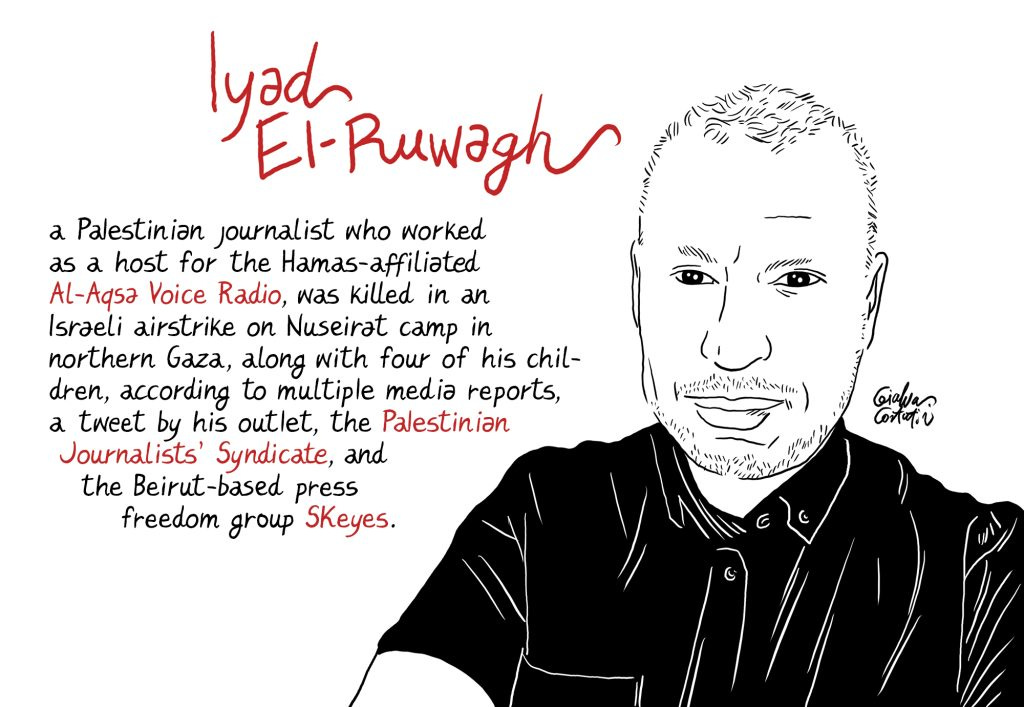 Iyad
El-Ruwagh
a Palestinian journalist who worked
as a host for the Hamas-affiliated
Al-Aqsa Voice Radio, was killed in an
Israeli airstrike on Nuseirat camp in
northern Gaza, along with four of his chil-
dren, according to multiple media reports,
a tweet by his outlet, the Palestinian
Journalists' Syndicate, and
the Beirut-based press
freedom group SKeyes.